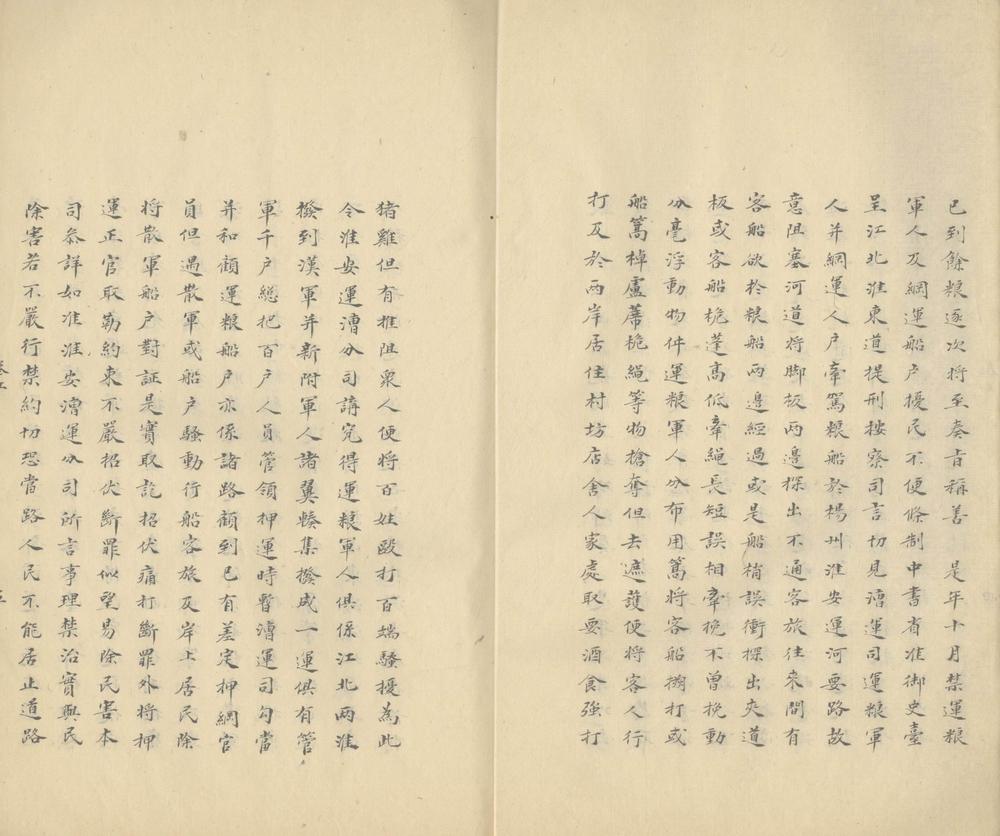 已到餘粮逐次將至奏旨稱善　是年十月禁運粮
軍人及綱運船户擾民不便條制中書省准御史臺
呈江北淮東道提刑按察司言切見漕運司運粮軍
人并綱運人户牽駕粮船於楊州淮安運河要路故
意阻塞河道将脚板两邊探出不通客旅往來間有
客船欲於粮船两邊經過或是船梢誤衝探出夾道
板或客船桅蓬髙低牽繩長短誤相牽挽不曽挽動
分毫浮動物件運粮軍人分布用篙将客船搠打或
船篙棹盧蓆桅繩等物搶奪但去遮護便将客人行
打及於两岸居住村坊店舍人家處取要酒食强打
猪雞但有推阻衆人便将百姓毆打百端騷擾為此
令淮安運漕分司講究得運粮軍人俱係江北两淮
撥到漢軍并新附軍人諸翼輳集撥成一運俱有管
軍千户緫把百户人員管領押運時暫漕運司勾當
并和顧運粮船户亦係諸路顧到已有差定押綱官
員但遇散軍或船户騷動行船客旅及岸上居民除
将散軍船户對証是實取訖招伏痛打斷罪外将押
運正官取勒約束不嚴招伏斷罪似望易除民害本
司叅詳如准淮安漕運分司所言事理禁治實與民
除害若不嚴行禁約切恐當路人民不能居止道路
卷五